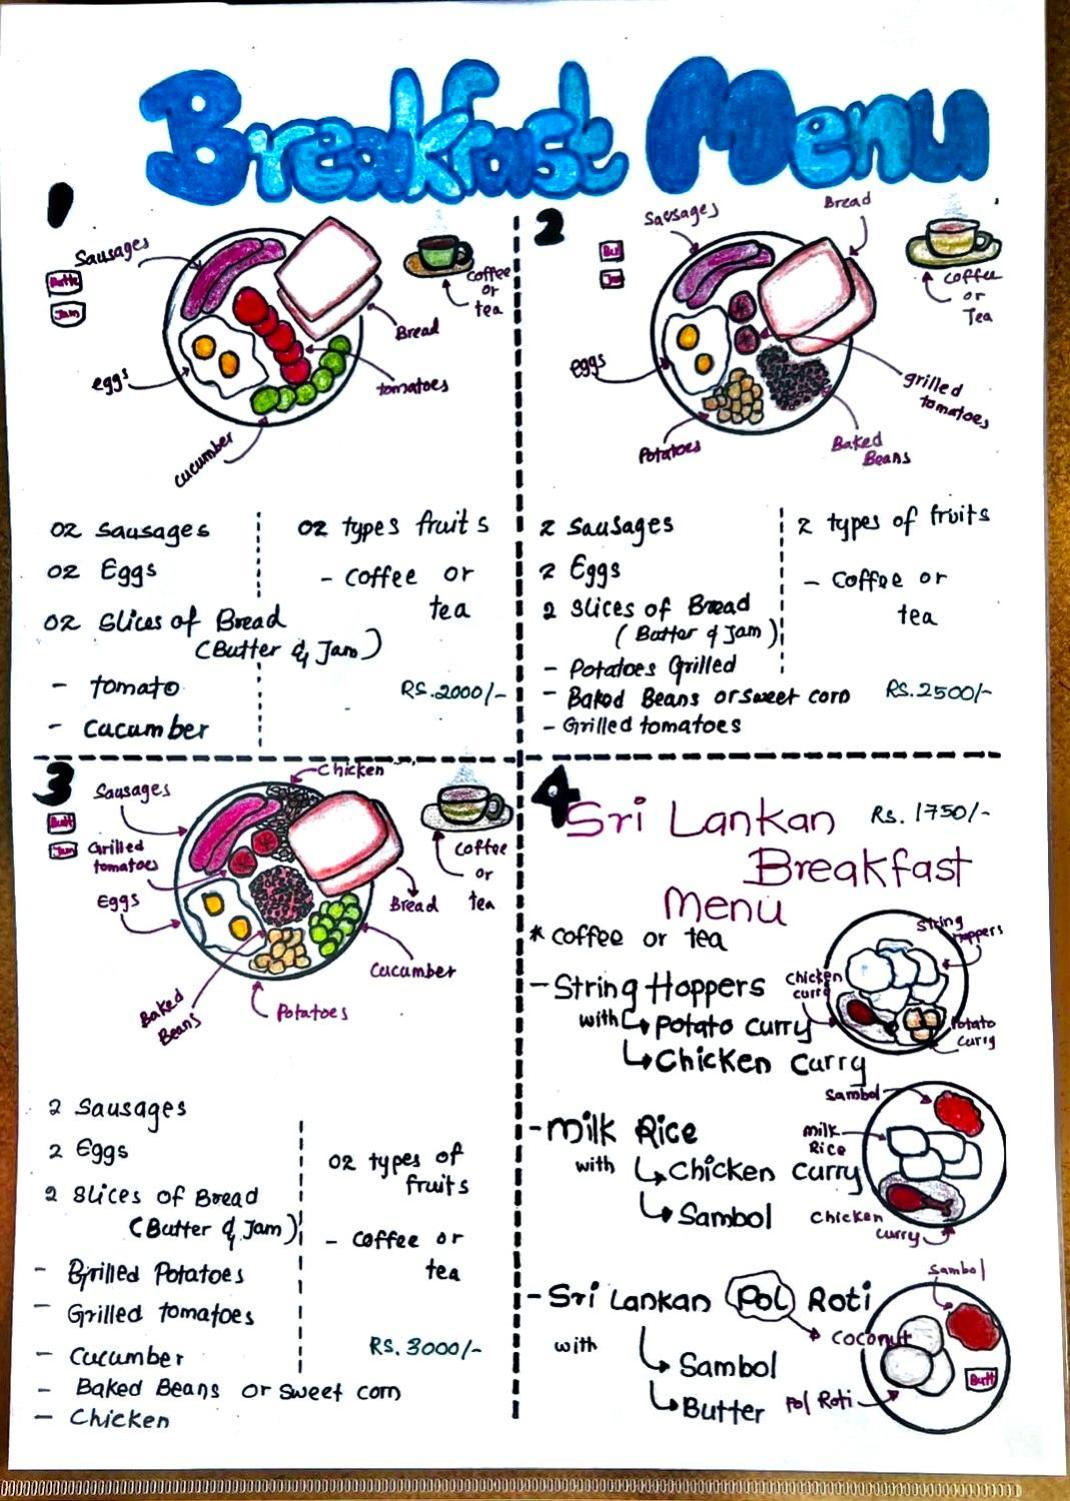 Breakfast Menu
1
Sausages
Butte
Jam
coffee
or
tea
Bread
eggs
tomatoes
cucumber
02 sausages
02 Eggs
02 Slices of Bread
(Butter & Jam)
- tomato
- cucumber
02 types fruits
- coffee or
tea
RS.2000/-
2
Sausages
Bread
But
Jam
coffee
or
Tea
eggs
grilled
tomatoes
Potatoes
Baked
Beans
2 Sausages
2 Eggs
2 Slices of Bread
(Butter & Jam)
- Potatoes Grilled
- Baked Beans or sweet corn
- Grilled tomatoes
2 types of fruits
- coffee or
tea
RS.2500/-
3
Chicken
Sausages
Butt
Jam
Grilled
tomatoes
Eggs
coffee
or
tea
Bread
Cucumber
Baked
Beans
Potatoes
2 Sausages
2 Eggs
2 Slices of Bread
(Butter & Jam)
- Grilled Potatoes
- Grilled tomatoes
- Cucumber
- Baked Beans or sweet corn
- Chicken
02 types of
fruits
- coffee or
tea
RS. 3000/-
4
Sri Lankan
Rs. 1750/-
Breakfast
Menu
* coffee or tea
- String Hoppers
with Potato curry
Chicken Curry
String
Hoppers
Chicken
curry
Potato
curry
- Milk Rice
with Chicken Curry
Sambol
Sambol
milk
Rice
Chicken
curry
- Sri Lankan Pol Roti
Coconut
with
Sambol
Butter
Sambol
Butt
Pol Roti